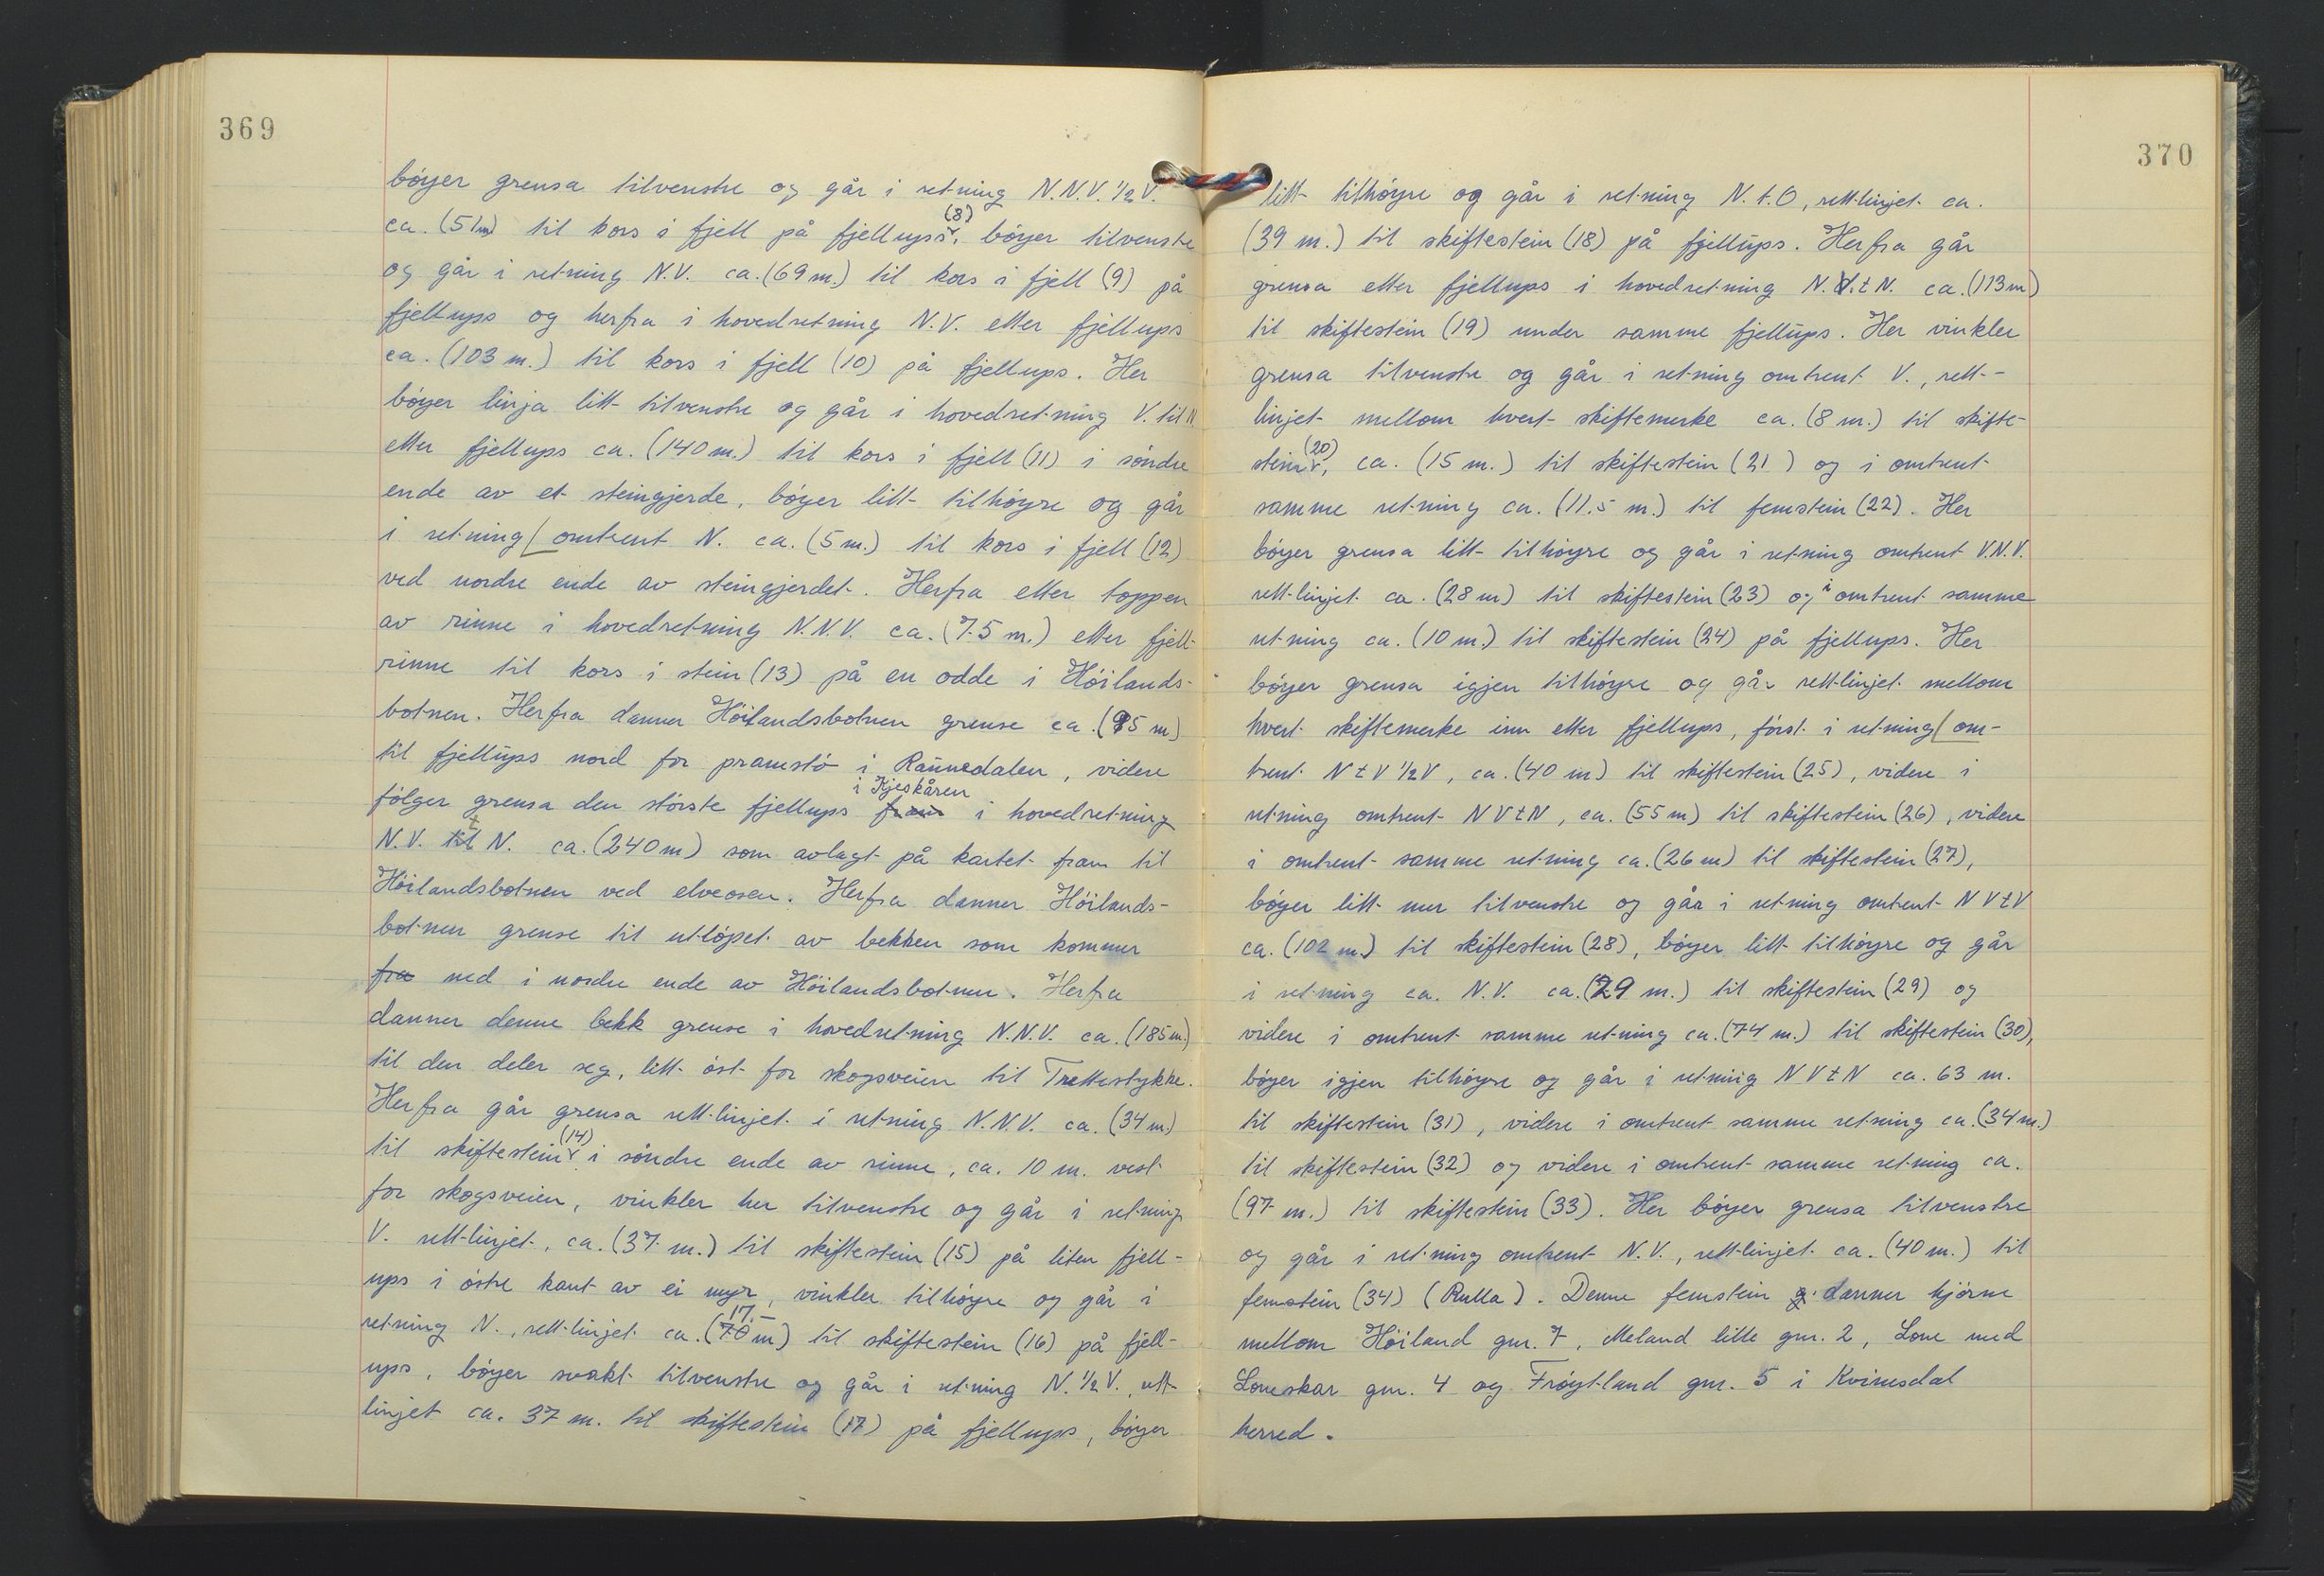 369
bøyer grensa tilvenstre og går i retning N.N.V. 1/2 V.
ca. (51m) til kors i fjell på fjellups (8), bøyer tilvenstre
og går i retning N.V. ca. (69 m.) til kors i fjell (9) på
fjellups og herfra i hovedretning N.V. etter fjellups
ca. (103 m.) til kors i fjell (10) på fjellups. Her
bøyer linja litt tilvenstre og går i hovedretning V. til N
etter fjellups ca. (140 m.) til kors i fjell (11) i søndre
ende av et steingjerde, bøyer litt tilhøyre og går
i retning omtrent N. ca. (5 m.) til kors i fjell (12)
ved nordre ende av steingjerdet. Herfra etter toppen
av rinne i hovedretning N.N.V. ca. (75 m.) etter fjell-
rinne til kors i stein (13) på en odde i Höilands-
botnen. Herfra danner Höilandsbotnen grense ca. (95 m)
til fjellups nord for pramstø i Rannedalen, videre
følger grensa den største fjellups fram i Kjeskåren i hovedretning
N.V. t N. ca. (240 m) som avlagt på kartet fram til
Höilandsbotnen ved elveosen. Herfra danner Höilands-
botnen grense til utløpet av bekken som kommer
fra ned i nordre ende av Höilandsbotnen. Herfra
danner denne bekk grense i hovedretning N.N.V. ca. (185 m.)
til den deler seg, litt øst for skogsveien til Trettestykke.
Herfra går grensa rettlinjet i retning N.N.V. ca. (34 m)
til skiftestein (14) i søndre ende av rinne, ca. 10 m. vest
for skogsveien, vinkler her tilvenstre og går i retning
V. rettlinjet, ca. (37 m.) til skiftestein (15) på liten fjell-
ups i østre kant av ei myr, vinkler tilhøyre og går i
retning N., rettlinjet ca. (70 17.- m) til skiftestein (16) på fjell-
ups, bøyer svakt tilvenstre og går i retning N. 1/2 V., rett-
linjet ca. 37 m. til skiftestein (17) på fjellups, bøyer
370
litt tilhøyre og går i retning N. t. O, rettlinjet ca.
(39 m.) til skiftestein (18) på fjellups. Herfra går
grensa etter fjellups i hovedretning N.V.t N. ca. (113 m)
til skiftestein (19) under samme fjellups. Her vinkler
grensa tilvenstre og går i retning omtrent V., rett-
linjet mellom hvert skiftemerke ca. (8 m.) til skifte-
stein (20), ca. (15 m.) til skiftestein (21) og i omtrent
samme retning ca. (11.5 m.) til femstein (22). Her
bøyer grensa litt tilhøyre og går i retning omtrent V.N.V.
rettlinjet ca. (28 m) til skiftestein (23) og i omtrent samme
retning ca. (10 m.) til skiftestein (24) på fjellups. Her
bøyer grensa igjen tilhøyre og går rettlinjet mellom
hvert skiftemerke inn etter fjellups, først i retning om-
trent N t V 1/2 V, ca. (40 m) til skiftestein (25), videre i
retning omtrent N V t N, ca. (55 m) til skiftestein (26), videre
i omtrent samme retning ca. (26 m) til skiftestein (27),
bøyer litt mer tilvenstre og går i retning omtrent N V t V
ca. (102 m.) til skiftestein (28), bøyer litt tilhøyre og går
i retning ca. N.V. ca. (29 m.) til skiftestein (29) og
videre i omtrent samme retning ca. (74 m.) til skiftestein (30),
bøyer igjen tilhøyre og går i retning N V t N ca. 63 m.
til skiftestein (31), videre i omtrent samme retning ca. (34 m.)
til skiftestein (32) og videre i omtrent samme retning ca.
(97 m.) til skiftestein (33). Her bøyer grensa tilvenstre
og går i retning omtrent N.V., rettlinjet ca. (40 m.) til
femstein (34) (Rulla). Denne femstein danner hjørne
mellom Höiland gnr. 7, Meland lille gnr. 2, Lone med
Loneskar gnr. 4 og Frøytland gnr. 5 i Kvinesdal
herred.